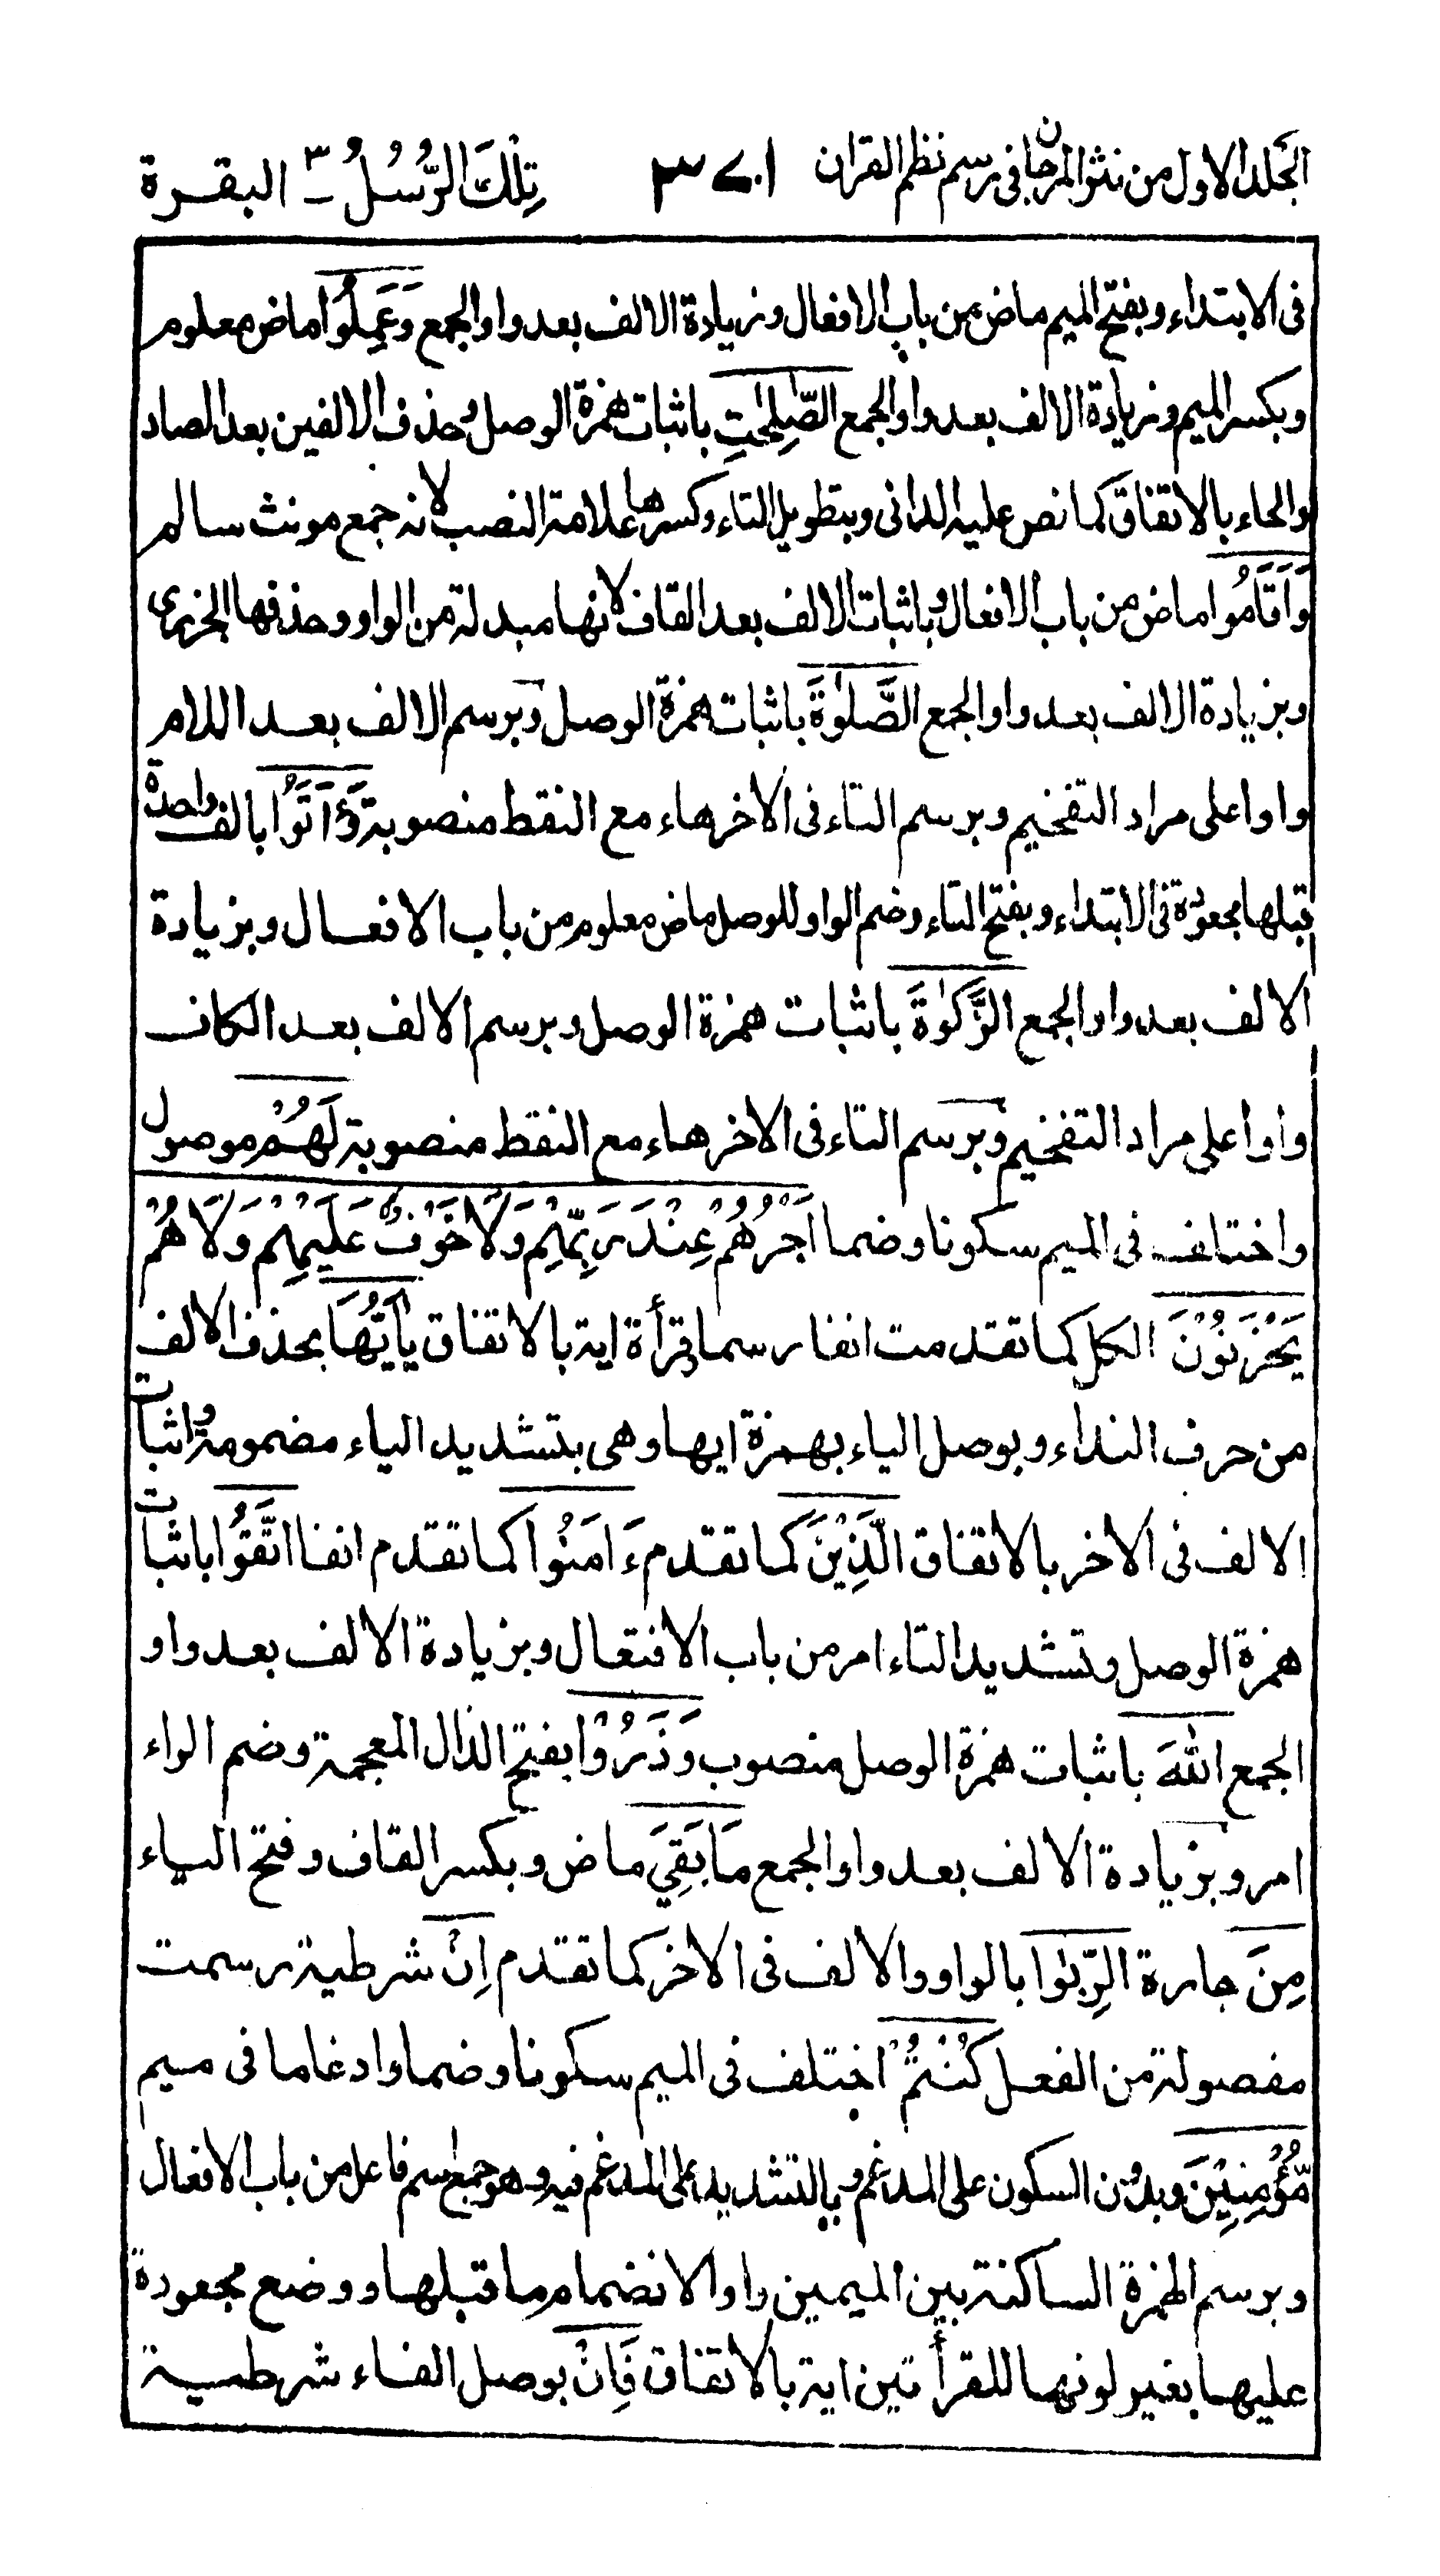 الجلد الاول من نثر المرجان فى رسم نظم القران ٣٧٠١ تِلْكَ الرُّسُلُ ـ ٣ البقرة
فى الابتداء و بفتح الميم ماض من باب الافعال و زيادة الالف بعد واو الجمع وَعَمِلُوا ماض معلوم
و بكسر الميم و زيادة الالف بعد واو الجمع الصّٰلِحٰتِ باثبات همزة الوصل و حذف الالفين بعد الصاد
والحاء بالاتفاق كما نص عليه الدانى و بتطويل التاء و كسرها علامة النصب لانه جمع مونث سالم
وَاَقَامُوا ماض من باب الافعال و باثبات الالف بعد القاف لانها مبدلة من الواو و حذفها الجزرى
و بزيادة الالف بعد واو الجمع الصَّلٰوةَ باثبات همزة الوصل و برسم الالف بعد اللام
واوا على مراد التفخيم و برسم التاء فى الاخر هاء مع النقط منصوبة وَءَاتَوُا بالف واحدة
قبلها مجعودة فى الابتداء و بفتح التاء و ضم الواو للوصل ماض معلوم من باب الافعال و بزيادة
الالف بعد واو الجمع الزَّكٰوةَ باثبات همزة الوصل و برسم الالف بعد الكاف
واوا على مراد التفخيم و برسم التاء فى الاخر هاء مع النقط منصوبة لَهُمْ موصول
واختلف فى الميم سكونا و ضما اَجْرُهُمْ عِنْدَ رَبِّهِمْ وَلَا خَوْفٌ عَلَيْهِمْ وَلَا هُمْ
يَحْزَنُوْنَ الكل كما تقدمت انفا رسما و قرأة اية بالاتفاق يٰاَيُّهَا بحذف الالف
من حرف النداء و بوصل الياء بهمزة ايها و هى بتشديد الياء مضمومة و اثبات
الالف فى الاخر بالاتفاق الَّذِيْنَ كما تقدم ءَامَنُوا كما تقدم انفا اتَّقُوا باثبات
همزة الوصل و تشديد التاء امر من باب الافتعال و بزيادة الالف بعد واو
الجمع اللّٰهَ باثبات همزة الوصل منصوب وَذَرُوْا بفتح الذال المعجمة و ضم الراء
امر و بزيادة الالف بعد واو الجمع مَا بَقِيَ ماض و بكسر القاف و فتح الياء
مِنَ جارة الرِّبٰوا بالواو و الالف فى الاخر كما تقدم اِنْ شرطية رسمت
مفصولة من الفعل كُنْتُمْ اختلف فى الميم سكونا و ضما و ادغاما فى ميم
مُّؤْمِنِيْنَ و بدون السكون على المدغم و بالتشديد على المدغم فيه و هو جمع اسم فاعل من باب الافعال
و برسم الهمزة الساكنة بين الميمين واوا لانضمام ما قبلها و وضع مجعودة
عليها بغير لونها للقرأتين اية بالاتفاق فَاِنْ بوصل الفاء شرطية